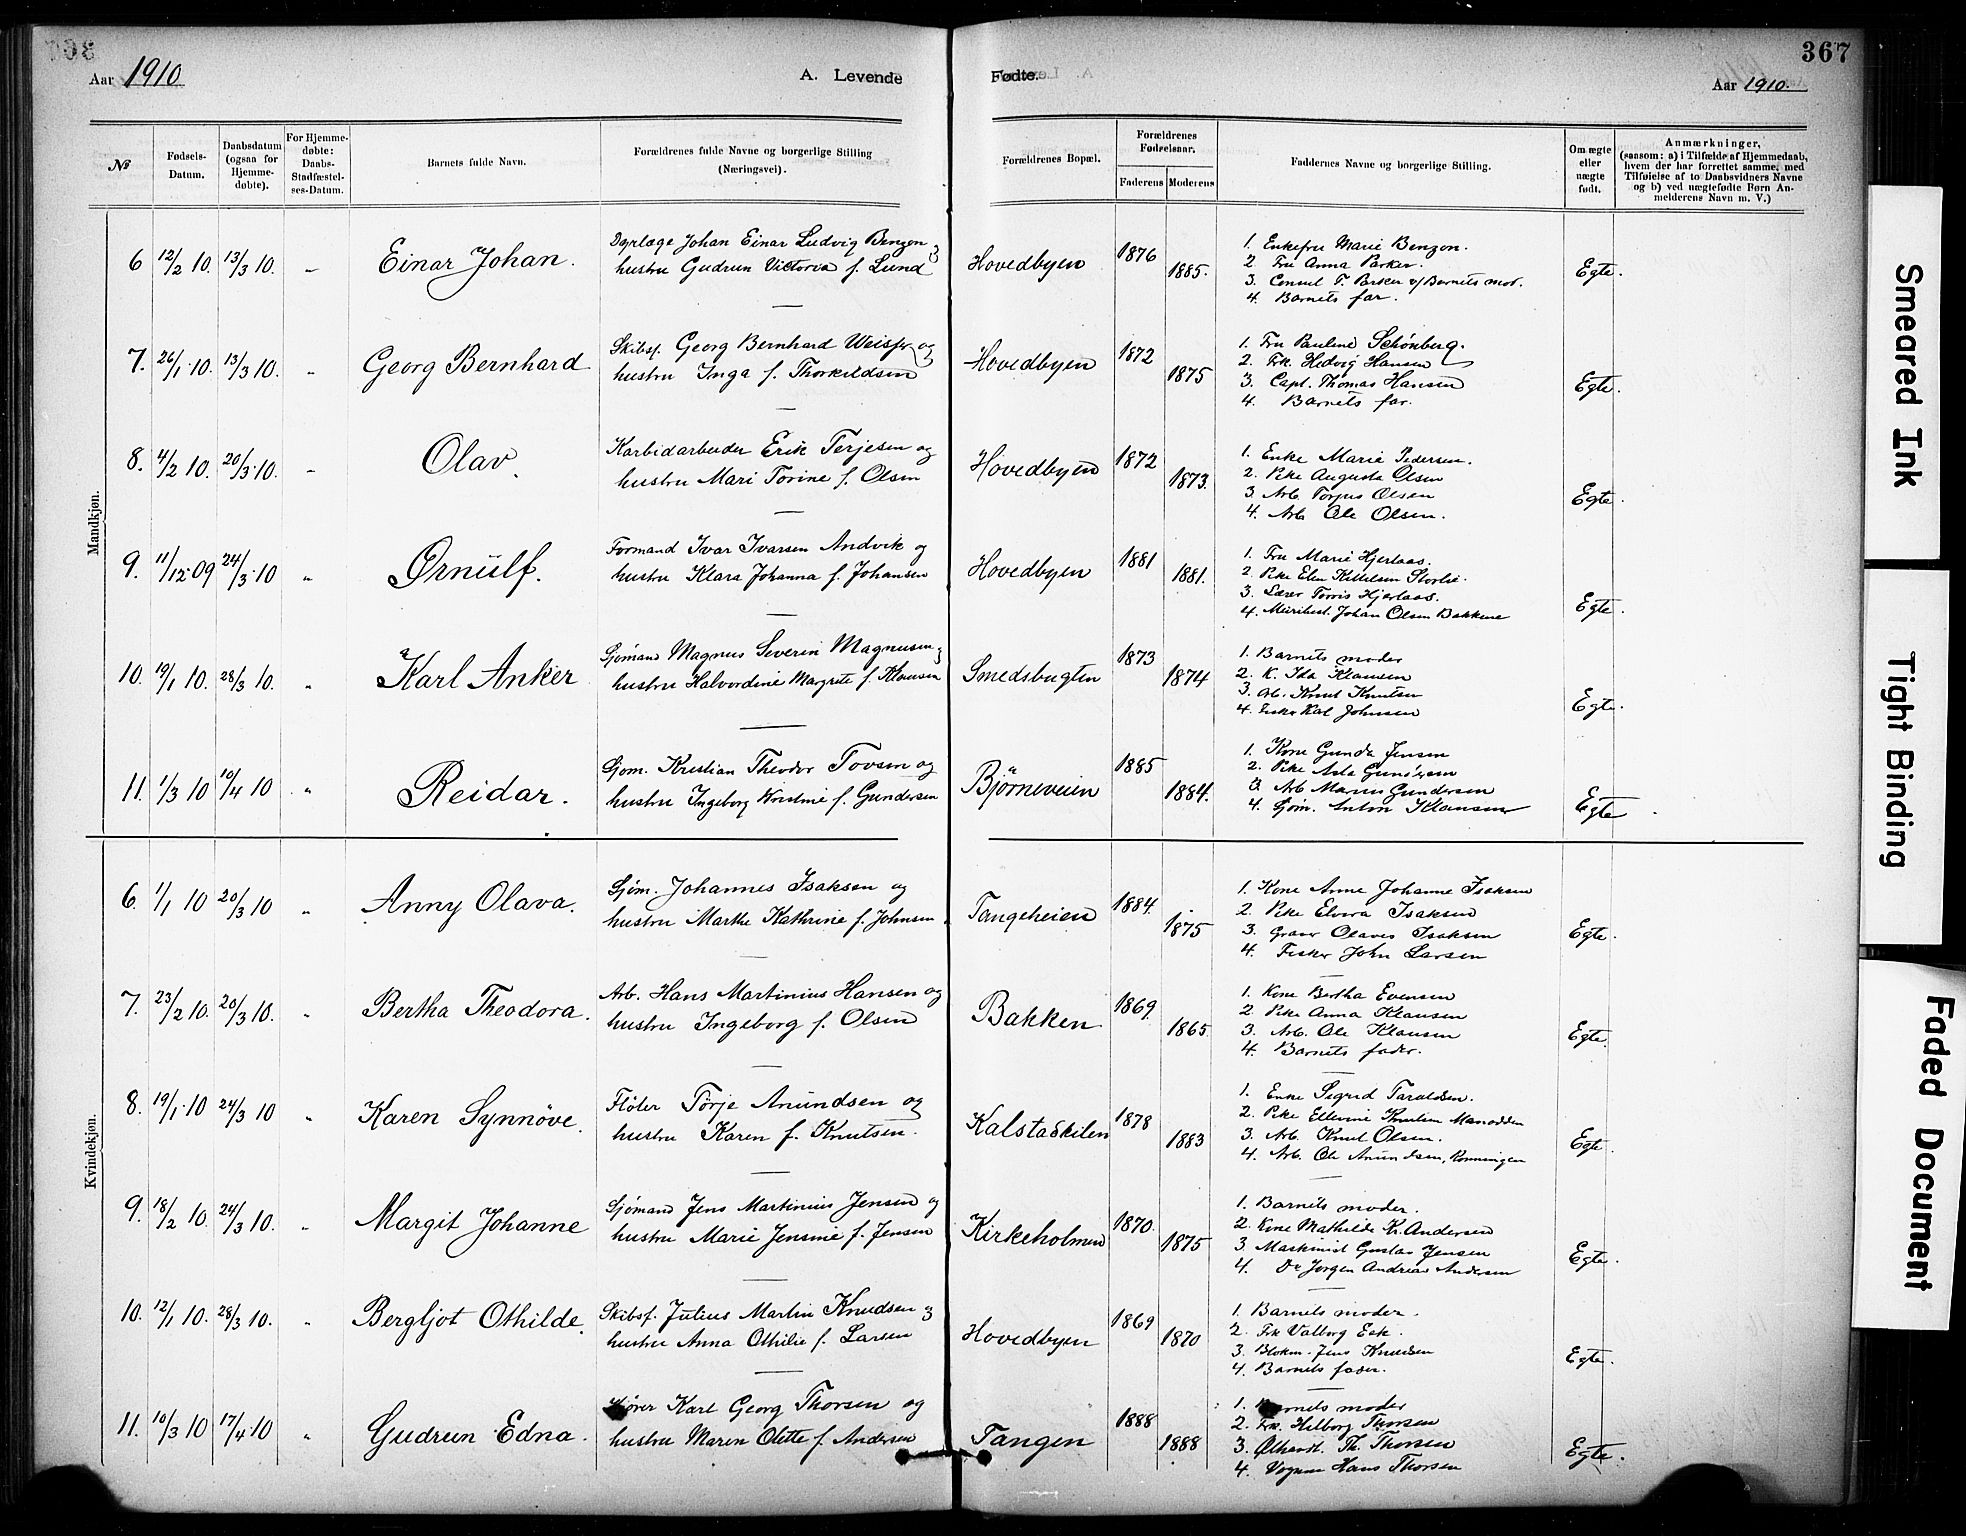 367
Aar 1910
A. Levende
Fødte.
Aar 1910.
№
Fødsels-Datum.
Daabsdatum (ogsaa for Hjemme-døbte).
For Hjemme-døbte: Daabs-Stadfæstel-ses-Datum.
Barnets fulde Navn.
Forældrenes fulde Navne og borgerlige Stilling (Næringsvei).
Forældrenes Bopæl.
Forældrenes Fødselsaar.
Faderens
Moderens
Faddernes Navne og borgerlige Stilling.
Om ægte eller uægte født.
Anmærkninger,
(saasom: a) i Tilfælde af Hjemmedaab, hvem der har forrettet samme, med Tilføielse af to Daabsvidners Navne og b) ved uægtefødte Børn An-melderens Navn m. V.)
Mandkjøn.
6 12/2 10. 13/3 10. " Einar Johan.
Dyrlæge Johan Einar Ludvig Benzon og
hustru Gudrun Victoria f. Lund
Hovedbyen 1876 1885.
1. Enkefru Marie Benzon.
2. Fru Anna Parker.
3. Consul T. Parker v/ Barnets mor.
4. Barnets far.
Egte.
7. 26/1 10. 13/3 10. " Georg Bernhard
Skibsf. Georg Bernhard og
hustru Inga f. Thorkildsen
Hovedbyen 1872 1875
1. Fru Pauline Schönberg.
2. Frk. Hedvig Hansen
3. Capt. Thomas Hansen
4. Barnets far.
Egte.
8. 4/2 10. 20/3 10. " Olav.
Karbidarbeider Erik Terjesen og
hustru Mari Torine f. Olsen
Hovedbyen 1872 1873.
1. Enke Marie Pedersen.
2. Pike Augusta Olsen
3. Arb. Torjus Olsen
4. Arb Ole Olsen.
Egte.
9. 11/12 09 24/3 10 " Ørnulf.
Formand Ivar Ivarsen Andvik og
hustru Klara Johanna f. Johansen
Hovedbyen 1881 1881.
1. Fru Marie Hjerlaas.
2. Pike Elen Kittelsen Storlie.
3. Lærer Torris Hjerlaas.
4. Johan Olsen Bakkene
Egte.
10. 19/1 10. 28/3 10. " Karl Anker
Sjømand Magnus Severin Magnusen og
hustru Halvordine Margrete f. Klausen
Smedsbugten 1873 1874
1. Barnets moder
2. K. Ida Klausen
3. Arb. Knut Knutsen
4. Fisker Karl Johnsen
Egte.
11. 1/3 10 10/4 10 " Reidar.
Sjøm. Kristian Theodor Tovsen og
hustru Ingeborg Kristine f. Gundersen
Bjørneveien 1885 1884.
1. Kone Gunda Jensen
2. Pike Asta Gundersen
3. Arb Marius Gundersen
4. Sjøm. Anton Klausen
Egte.
Kvindekjøn.
6. 1/1 10 20/3 10 " Anny Olava.
Sjøm. Johannes Isaksen og
hustru Marthe Kathrine f. Johnsen
Tangeheien 1884. 1875
1. Kone Anne Johanne Isaksen
2. Pike Elvira Isaksen
3. Graver Olaves Isaksen
4. Fisker John Larsen
Egte.
7. 23/2 10. 20/3 10. " Bertha Theodora.
Arb. Hans Martinius Hansen og
hustru Ingeborg f. Olsen
Bakken 1869. 1865.
1. Kone Bertha Evensen
2 Pike Anna Klausen
3. Arb. Ole Klausen
4. Barnets fader.
Egte.
8. 19/1 10 24/3 10 " Karen Synnöve.
Fløter Torje Anundsen og
hustru Karen f. Knutsen.
Kalstadkilen 1878 1883
1. Enke Sigrid Taraldsen.
2. Pike Ellevine Knutsen
3. Arb. Knut Olsen.
4. Arb. Ole Anundsen, Rønningen
Egte.
9. 18/2 10. 24/3 10. " Margit Johanne
Sjømand Jens Martinius Jensen og
hustru Marie Jensine f. Jensen
Kirkeholmen 1870. 1875
1. Barnets moder.
2. Kone Mathilde Kr. Andersen
3. Maskinist Gustav Jensen
4. Do Jørgen Andreas Andersen
Egte.
10. 12/1 10. 28/3 10. " Bergljot Othilde.
Skibsf. Julius Martin Knudsen og
hustru Anna Othilie f. Larsen
Hovedbyen 1869 1870
1. Barnets moder.
2. Frk Valborg Eek.
3. Blokm. Jens Knudsen
4. Barnets fader.
Egte.
11. 10/3 10 17/4 10 " Gudrun Edna.
Karl Georg Thorsen og
hustru Maren Olette f. Andersen
Tangen 1888 1888
1. Barnets moder
2. Frk. Hilborg Thorsen
3. Ølhandl. Th. Thorsen
4. Vognm Hans Thorsen
Egte.
Smeared Ink
Tight Binding
Faded Document